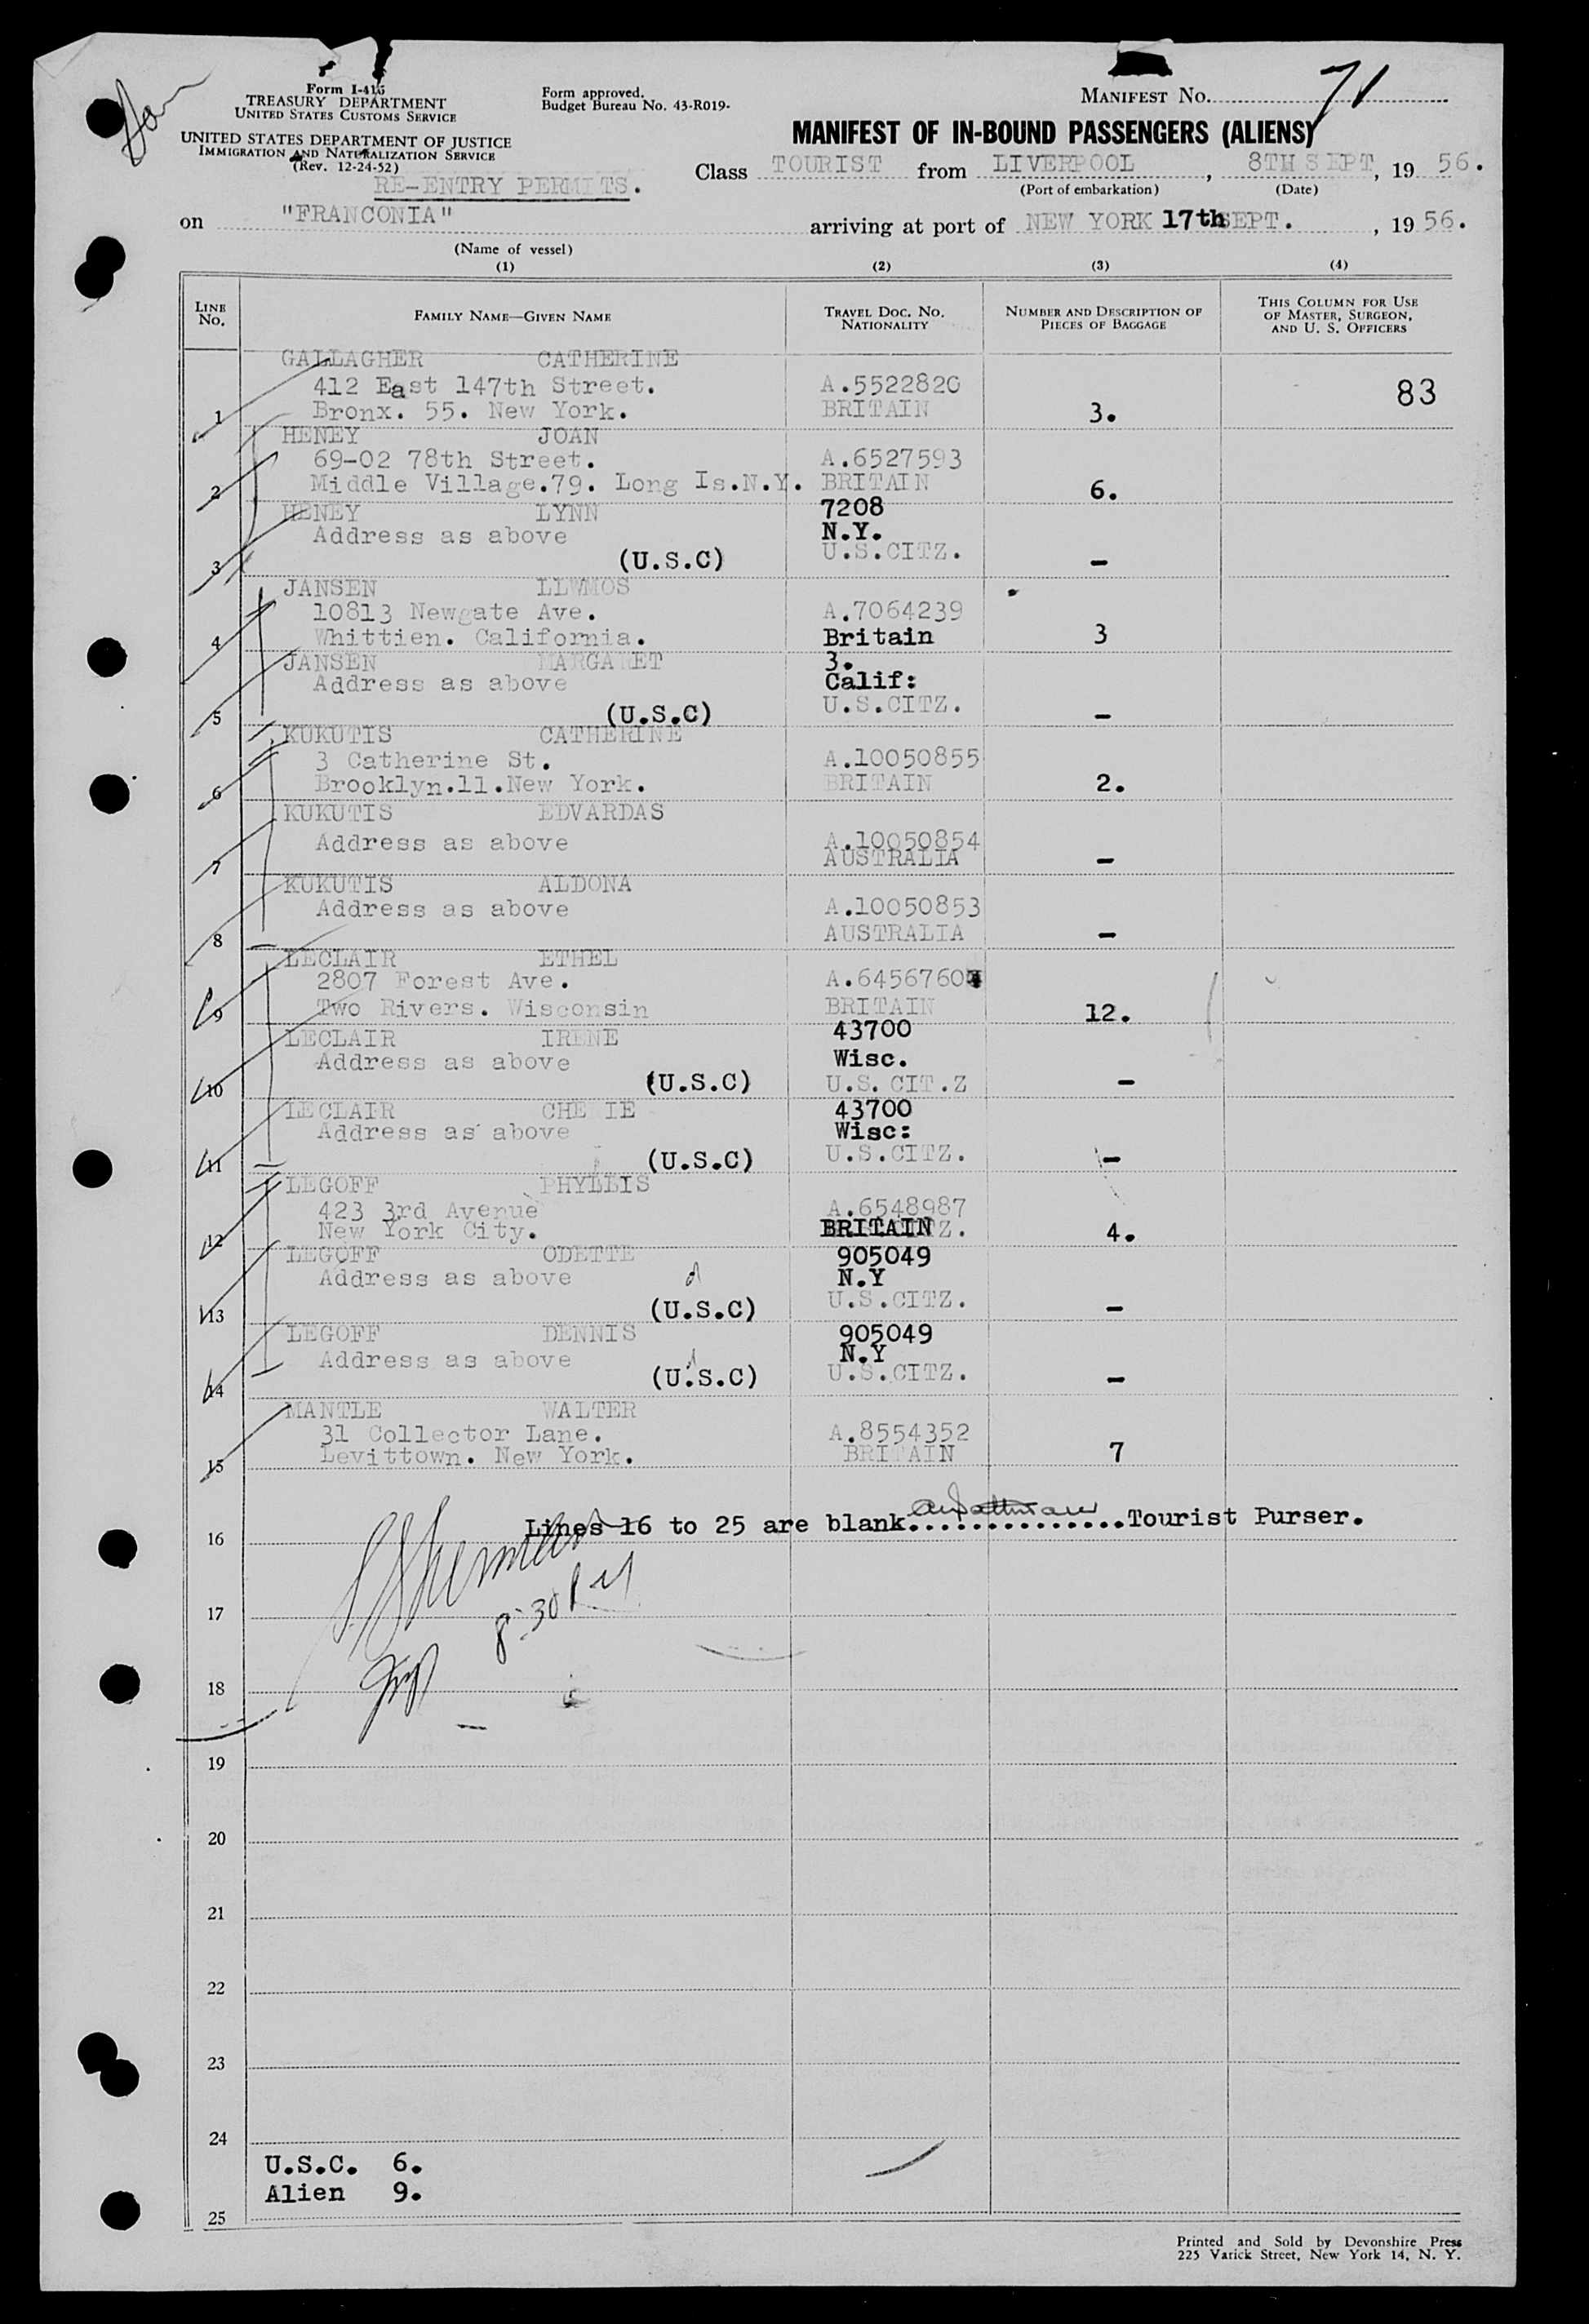 Form I-415
TREASURY DEPARTMENT
UNITED STATES CUSTOMS SERVICE
UNITED STATES DEPARTMENT OF JUSTICE
IMMIGRATION AND NATURALIZATION SERVICE
(Rev. 12-24-52)
RE-ENTRY PERMITS.
Form approved.
Budget Bureau No. 43-R019-
MANIFEST NO. 71
MANIFEST OF IN-BOUND PASSENGERS (ALIENS)
Class TOURIST from LIVERPOOL, 8TH SEPT, 19 56.
(Port of embarkation) (Date)
on "FRANCONIA" arriving at port of NEW YORK 17th SEPT. , 19 56.
(Name of vessel)
(1) (2) (3) (4)
LINE NO. FAMILY NAME—GIVEN NAME TRAVEL DOC. NO. NATIONALITY NUMBER AND DESCRIPTION OF PIECES OF BAGGAGE THIS COLUMN FOR USE OF MASTER, SURGEON, AND U. S. OFFICERS
GALLAGHER CATHERINE
412 East 147th Street. A.5522820 83
1 Bronx. 55. New York. BRITAIN 3.
HENEY JOAN
69-02 78th Street. A.6527593
2 Middle Village.79. Long Is.N.Y. BRITAIN 6.
HENEY LYNN 7208
Address as above N.Y.
3 (U.S.C) U.S.CITZ. –
JANSEN LLWMOS
10813 Newgate Ave. A.7064239
4 Whittien. California. Britain 3
JANSEN MARGARET 3.
Address as above Calif:
5 (U.S.C) U.S.CITZ. –
KUKUTIS CATHERINE
3 Catherine St. A.10050855
6 Brooklyn.11.New York. BRITAIN 2.
KUKUTIS EDVARDAS
Address as above A.10050854
7 AUSTRALIA –
KUKUTIS ALDONA
Address as above A.10050853
8 AUSTRALIA –
LECLAIR ETHEL
2807 Forest Ave. A.64567604
9 Two Rivers. Wisconsin BRITAIN 12.
LECLAIR IRENE 43700
Address as above Wisc.
10 (U.S.C) U.S. CIT.Z –
LECLAIR CHE IE 43700
Address as above Wisc:
11 (U.S.C) U.S.CITZ. –
LEGOFF PHYLLIS
423 3rd Avenue A.6548987
12 New York City. BRITAIN 4.
LEGOFF ODETTE 905049
Address as above N.Y
13 (U.S.C) U.S.CITZ. –
LEGOFF DENNIS 905049
Address as above N.Y
14 (U.S.C) U.S.CITZ. –
MANTLE WALTER
31 Collector Lane. A.8554352
15 Levittown. New York. BRITAIN 7
16 Lines 16 to 25 are blank...............Tourist Purser.
8:30 PM
17
18
19
20
21
22
23
24
U.S.C. 6.
Alien 9.
25
Printed and Sold by Devonshire Press
225 Varick Street, New York 14, N. Y.